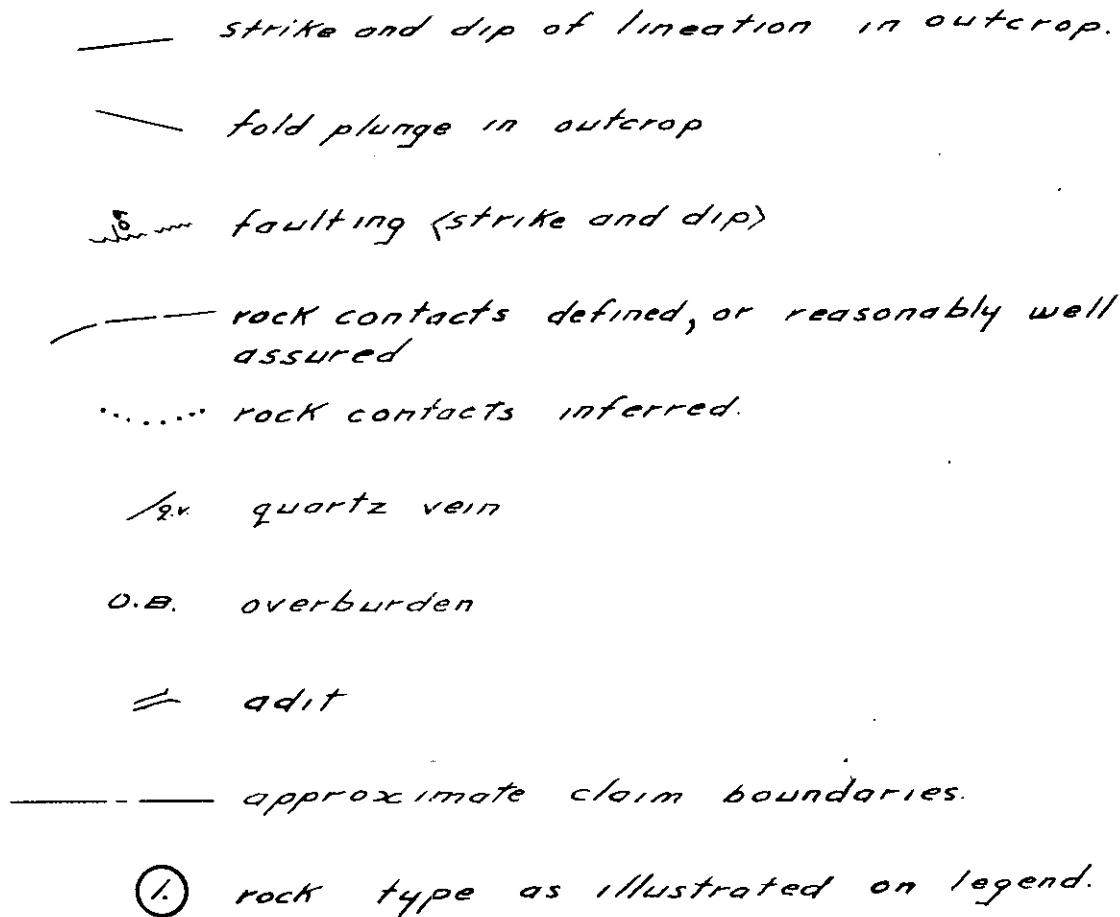 strike and dip of lineation in outcrop.
fold plunge in outcrop
faulting (strike and dip)
rock contacts defined, or reasonably well
assured
rock contacts inferred.
q.v. quartz vein
O.B. overburden
adit
approximate claim boundaries.
1. rock type as illustrated on legend.